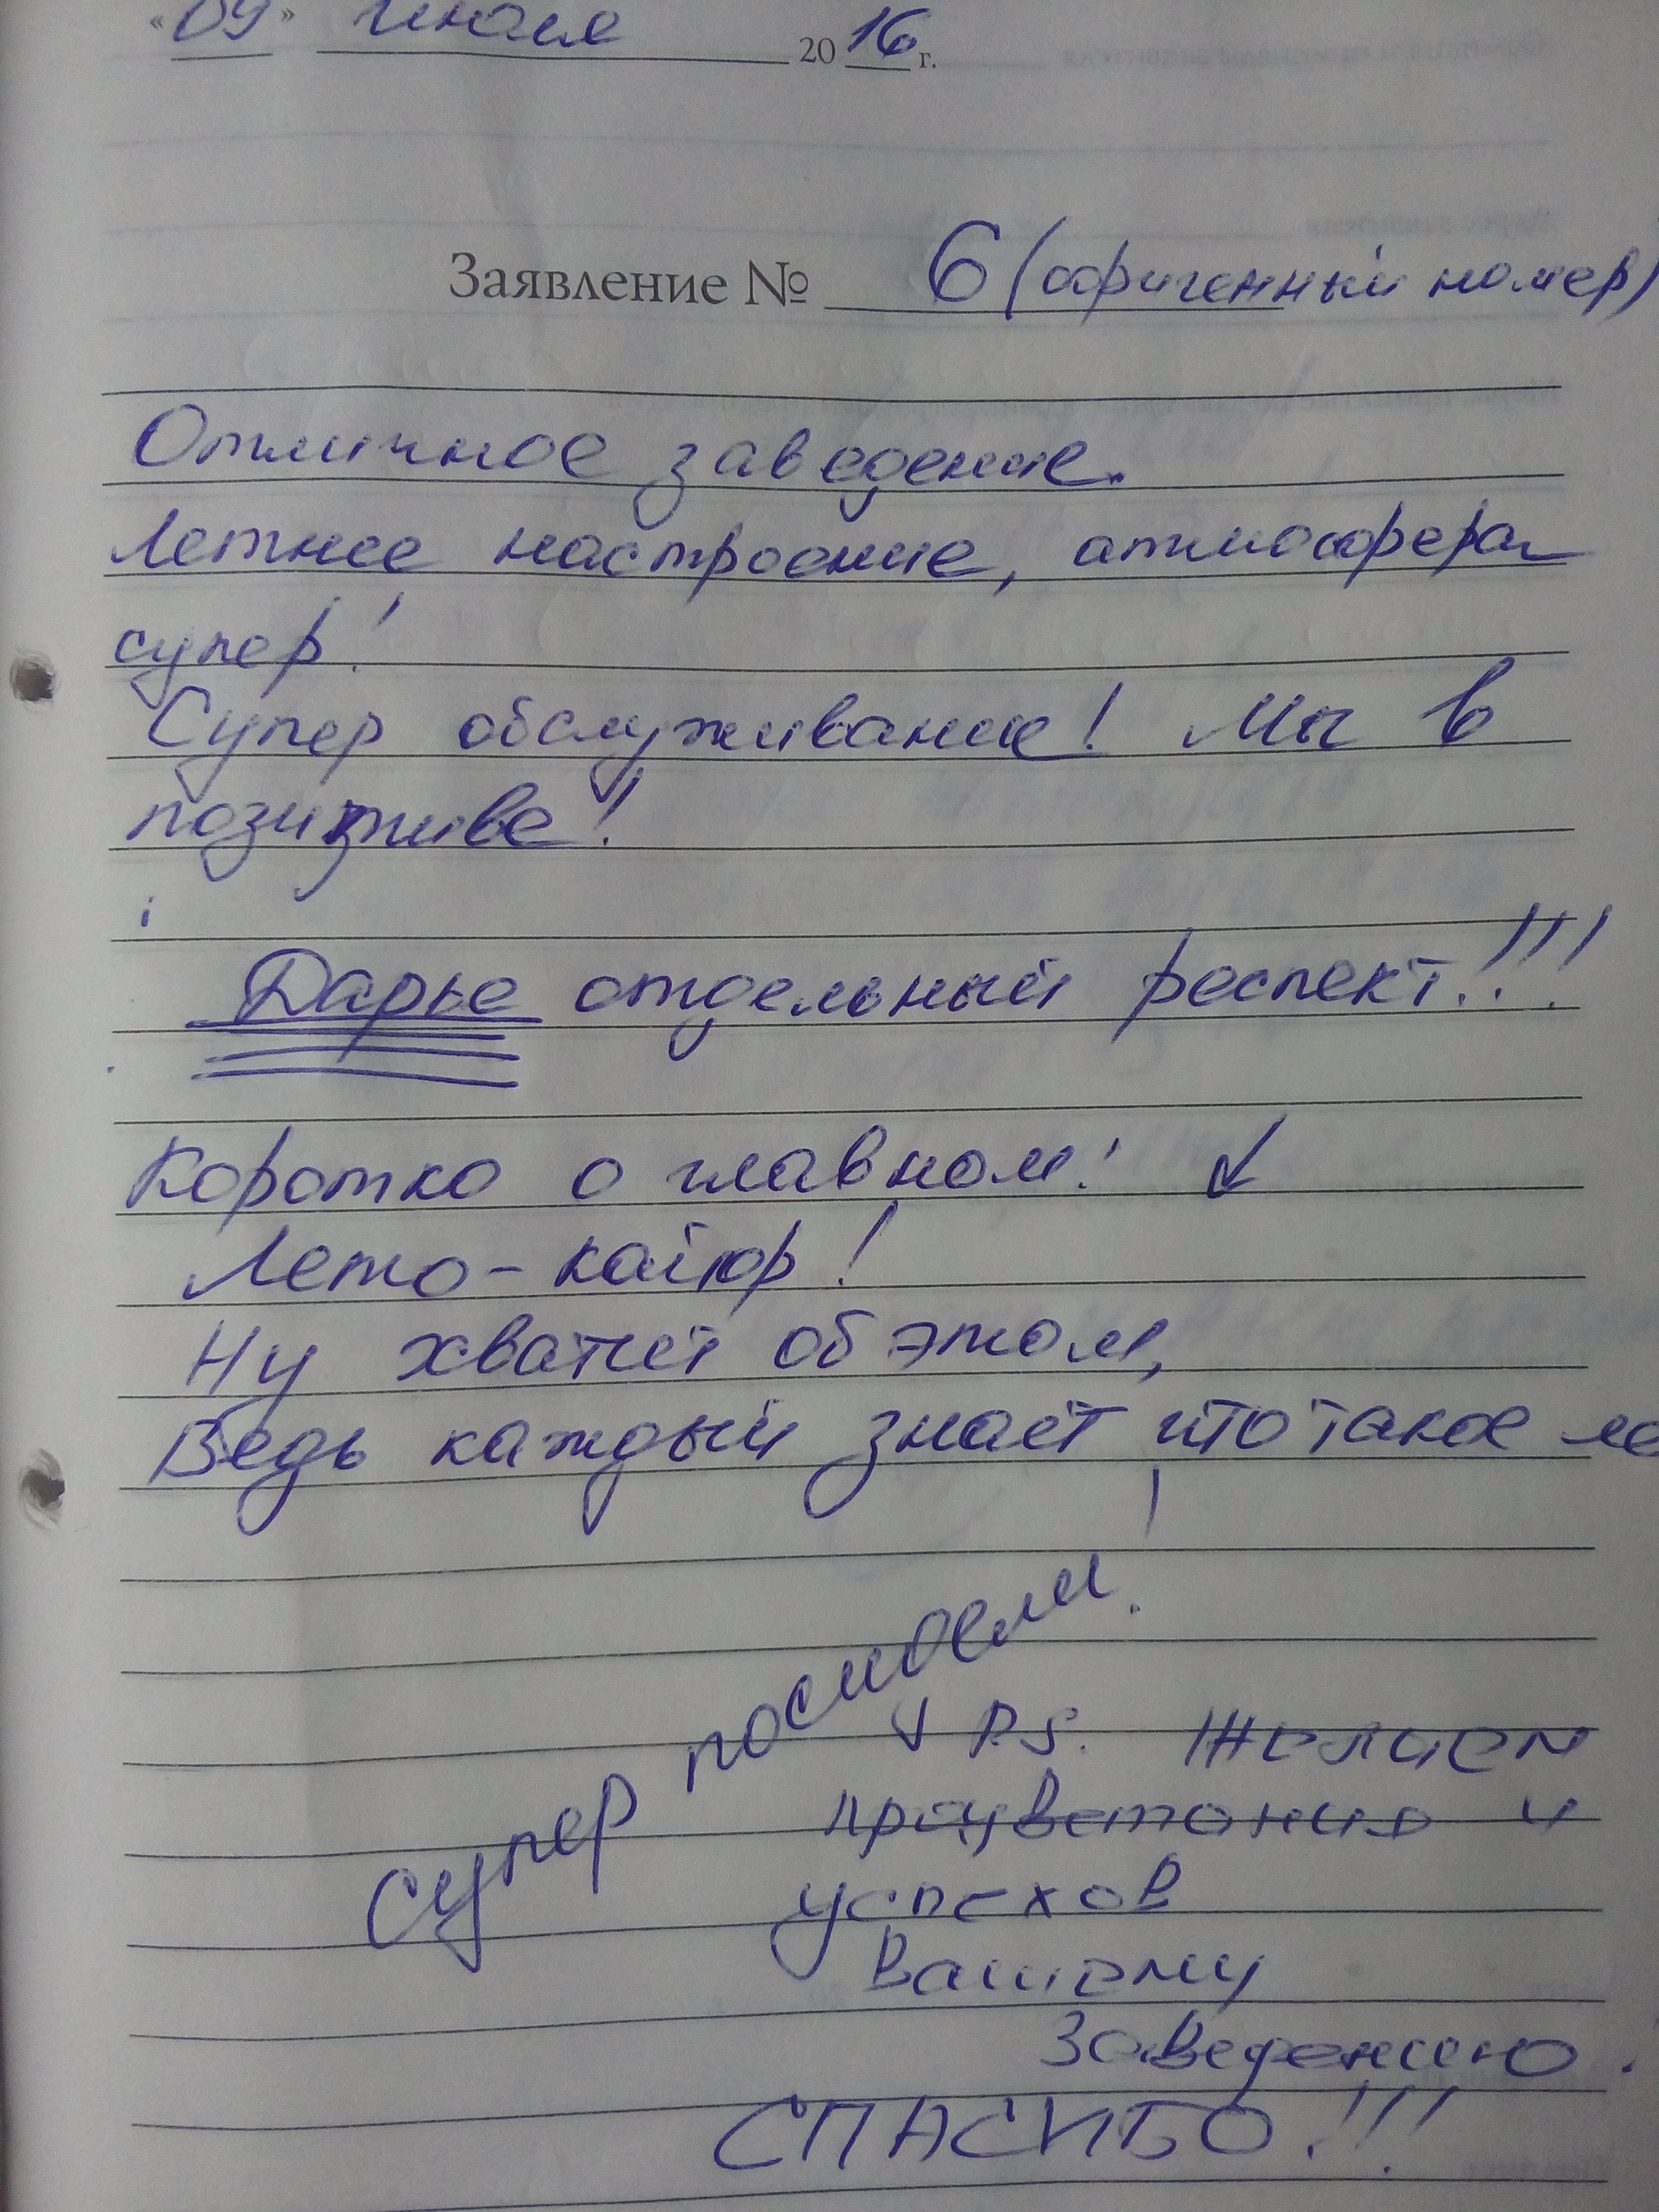 «09» июля 2016 г.
Заявление № 6 (офигенный номер)
Отличное заведение.
Летнее настроение, атмосфера
супер!
Супер обслуживание! Мы в
позитиве!
Дарье отдельный респект!!!
Коротко о главном: ↙
Лето - кайф!
Ну хватит об этом,
Ведь каждый знает что такое ле
Супер посидели!
P.S. Желаем
процветания и
успехов
Вашему
Заведению.
СПАСИБО!!!